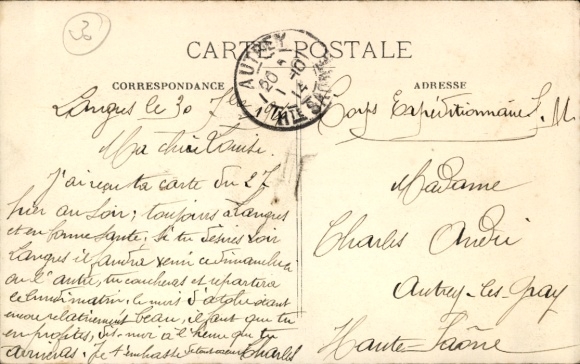 30
CARTE POSTALE
AUTREY
20
1-10
14
HTE SAÔNE
CORRESPONDANCE
ADRESSE
Langres le 30 7bre 1914
Corps Expéditionnaire S. M.
Ma chère Louise.
J'ai reçu ta carte du 27
hier au soir; toujours à Langres
et en bonne santé. Si tu désires voir
Langres il faudra venir ce dimanche
ou l'autre, tu coucheras et repartira
le lundi matin, le mois d'octobre étant
encore relativement beau, il faut que tu
en profites, dis-moi à l'heure que tu
arriveras: je t'embrasse Charles
Madame
Charles André
Autrey-les-Gray
Haute-Saône